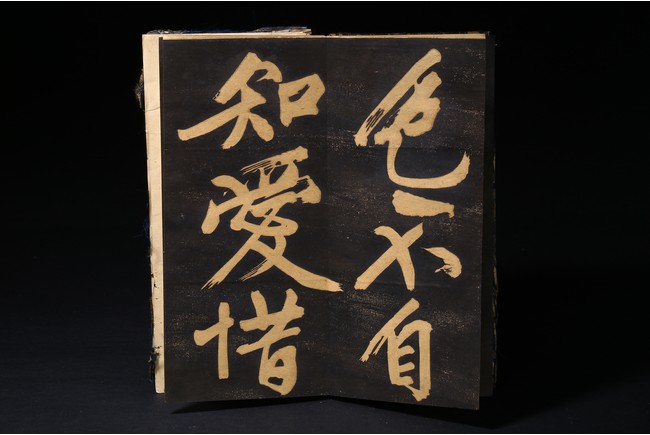 色不自
知愛惜